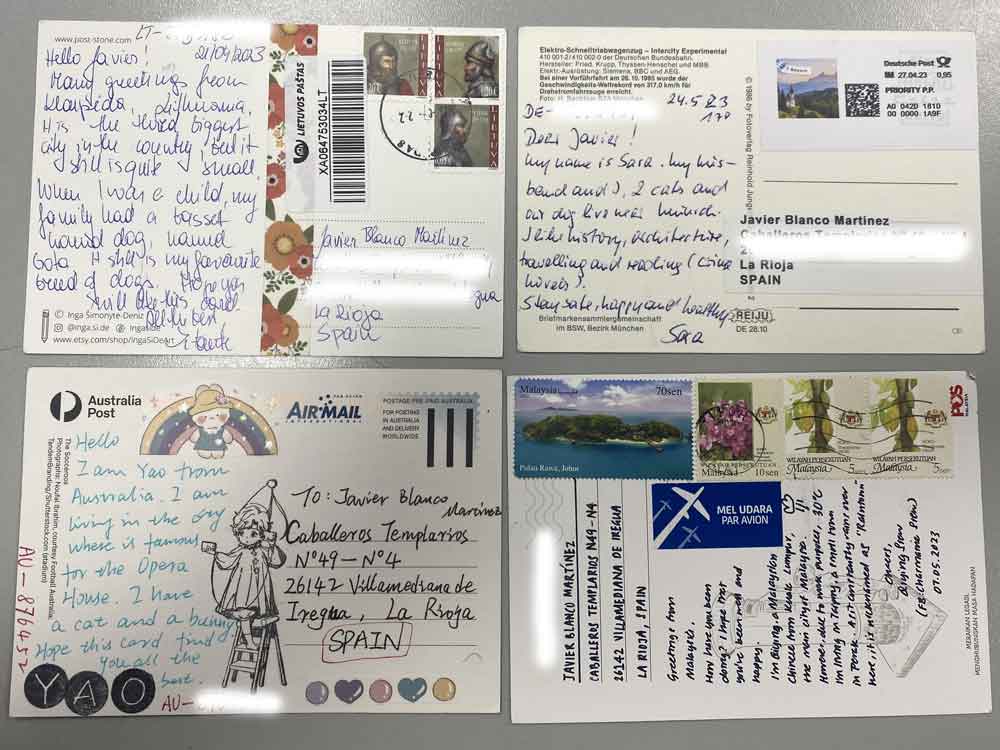 www.post-stone.com
21/04/2023
Hello Javier!
Many greetings from
Klaipėda, Lithuania.
It is the third biggest
city in the country, but it
still is quite small.
When I was a child, my
family had a basset
hound dog, named
Gota. It still is my favourite
breed of dogs. Hope you
will like this card.
All the best
© Inga Šimonytė-Deniz
@inga.si.de IngaSiDe
www.etsy.com/shop/IngaSiDeArt
LIETUVOS PAŠTAS
XA084753034LT
LIETUVA
LIETUVA
LIETUVA
Javier Blanco Martinez
La Rioja
Spain
Elektro-Schnelltriebwagenzug – Intercity Experimental
410 001-2/410 002-0 der Deutschen Bundesbahn.
Hersteller: Fried. Krupp, Thyssen-Henschel und MBB.
Elektr.-Ausrüstung: Siemens, BBC und AEG.
Bei einer Versuchsfahrt am 26.10.1985 wurde der
Geschwindigkeits-Weltrekord von 317,0 km/h für
Drehstromfahrzeuge erreicht.
DE-
Dear Javier!
my name is Sara. my hus-
band and I, 2 cats and
our dog live near munich.
I like history, architecture,
travelling and reading (crime
novels).
Stay safe, happy and healthy
Sara
Briefmarkensammlergemeinschaft
im BSW, Bezirk München
REIJU
DE 28.10
© 1986 by Fotoverlag Reinhold Jung
Bayern
Deutsche Post
27.04.23 0,95
PRIORITY P.P.
A0 0420 1810
00 0000 1A9F
Javier Blanco Martinez
La Rioja
SPAIN
Australia
Post
The Socceroos
Photographs: Noufal Ibrahim, courtesy Football Australia;
TandemBranding/Shutterstock.com (stadium)
AU-876452
Hello
I am Yao from
Australia. I am
living in the city
where is famous
for the Opera
House. I have
a cat and a bunny
Hope this card find
you all the
best.
YAO
AU-
PAR AVION
AIRMAIL
INTERNATIONAL
POSTAGE PRE-PAID AUSTRALIA
FOR POSTING
IN AUSTRALIA
AND DELIVERY
WORLDWIDE
TO: Javier Blanco
Martinez
Caballeros Templarios
N°49-N°4
26142 Villamediana de
Iregua, La Rioja
SPAIN
Malaysia 70sen
Pulau Rawa, Johor
WILAYAH PERSEKUTUAN
Malaysia 10sen
WILAYAH PERSEKUTUAN
Malaysia 5sen
WILAYAH PERSEKUTUAN
Malaysia 5sen
POS
MALAYSIA
MEL UDARA
PAR AVION
JAVIER BLANCO MARTÍNEZ
CABALLEROS TEMPLARIOS N49-N4
26142 VILLAMEDIANA DE IREGUA
LA RIOJA, SPAIN
Greetings from
Malaysia.
How have you been
doing? I hope that
you've been well and
happy.
I'm Biqing, a Malaysian
Chinese from Kuala Lumpur,
the main city of Malaysia.
However, due to work purposes,
I'm living in Taiping, a small town
in Perak. As it constantly rains over
here, it is nicknamed as "Raintown"
30°C
Cheers,
07.05.2023
MERAIKAN LEGASI,
MENGHUBUNGKAN MASA HADAPAN